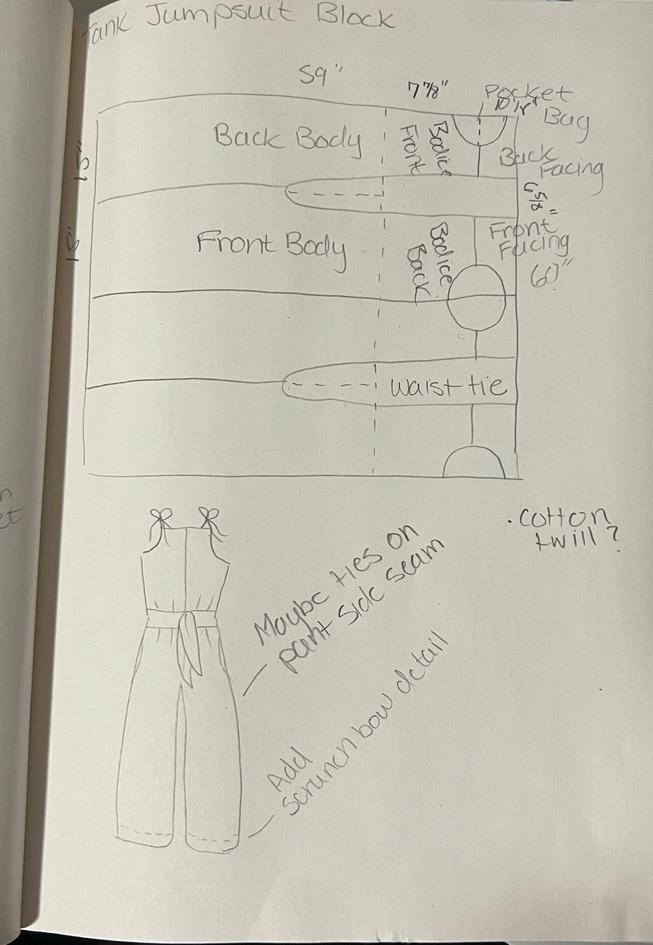 Tank Jumpsuit Block
59"
7 7/8"
Pocket
10 1/8"
Bag
15"
Back Body
Bodice
Front
Back
Facing
6 5/8"
15"
Front Body
Bodice
Back
Front
Facing
(6)"
waist tie
. cotton
twill?
Maybe ties on
pant side seam
Add
scrunch bow detail